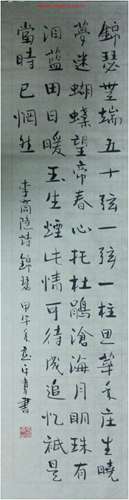 錦瑟無端五十弦一弦一柱思華年莊生曉
夢迷蝴蝶望帝春心托杜鵑滄海月明珠有
淚藍田日暖玉生煙此情可待成追憶祇是
當時已惘然
李商隱詩錦瑟 甲午年
書